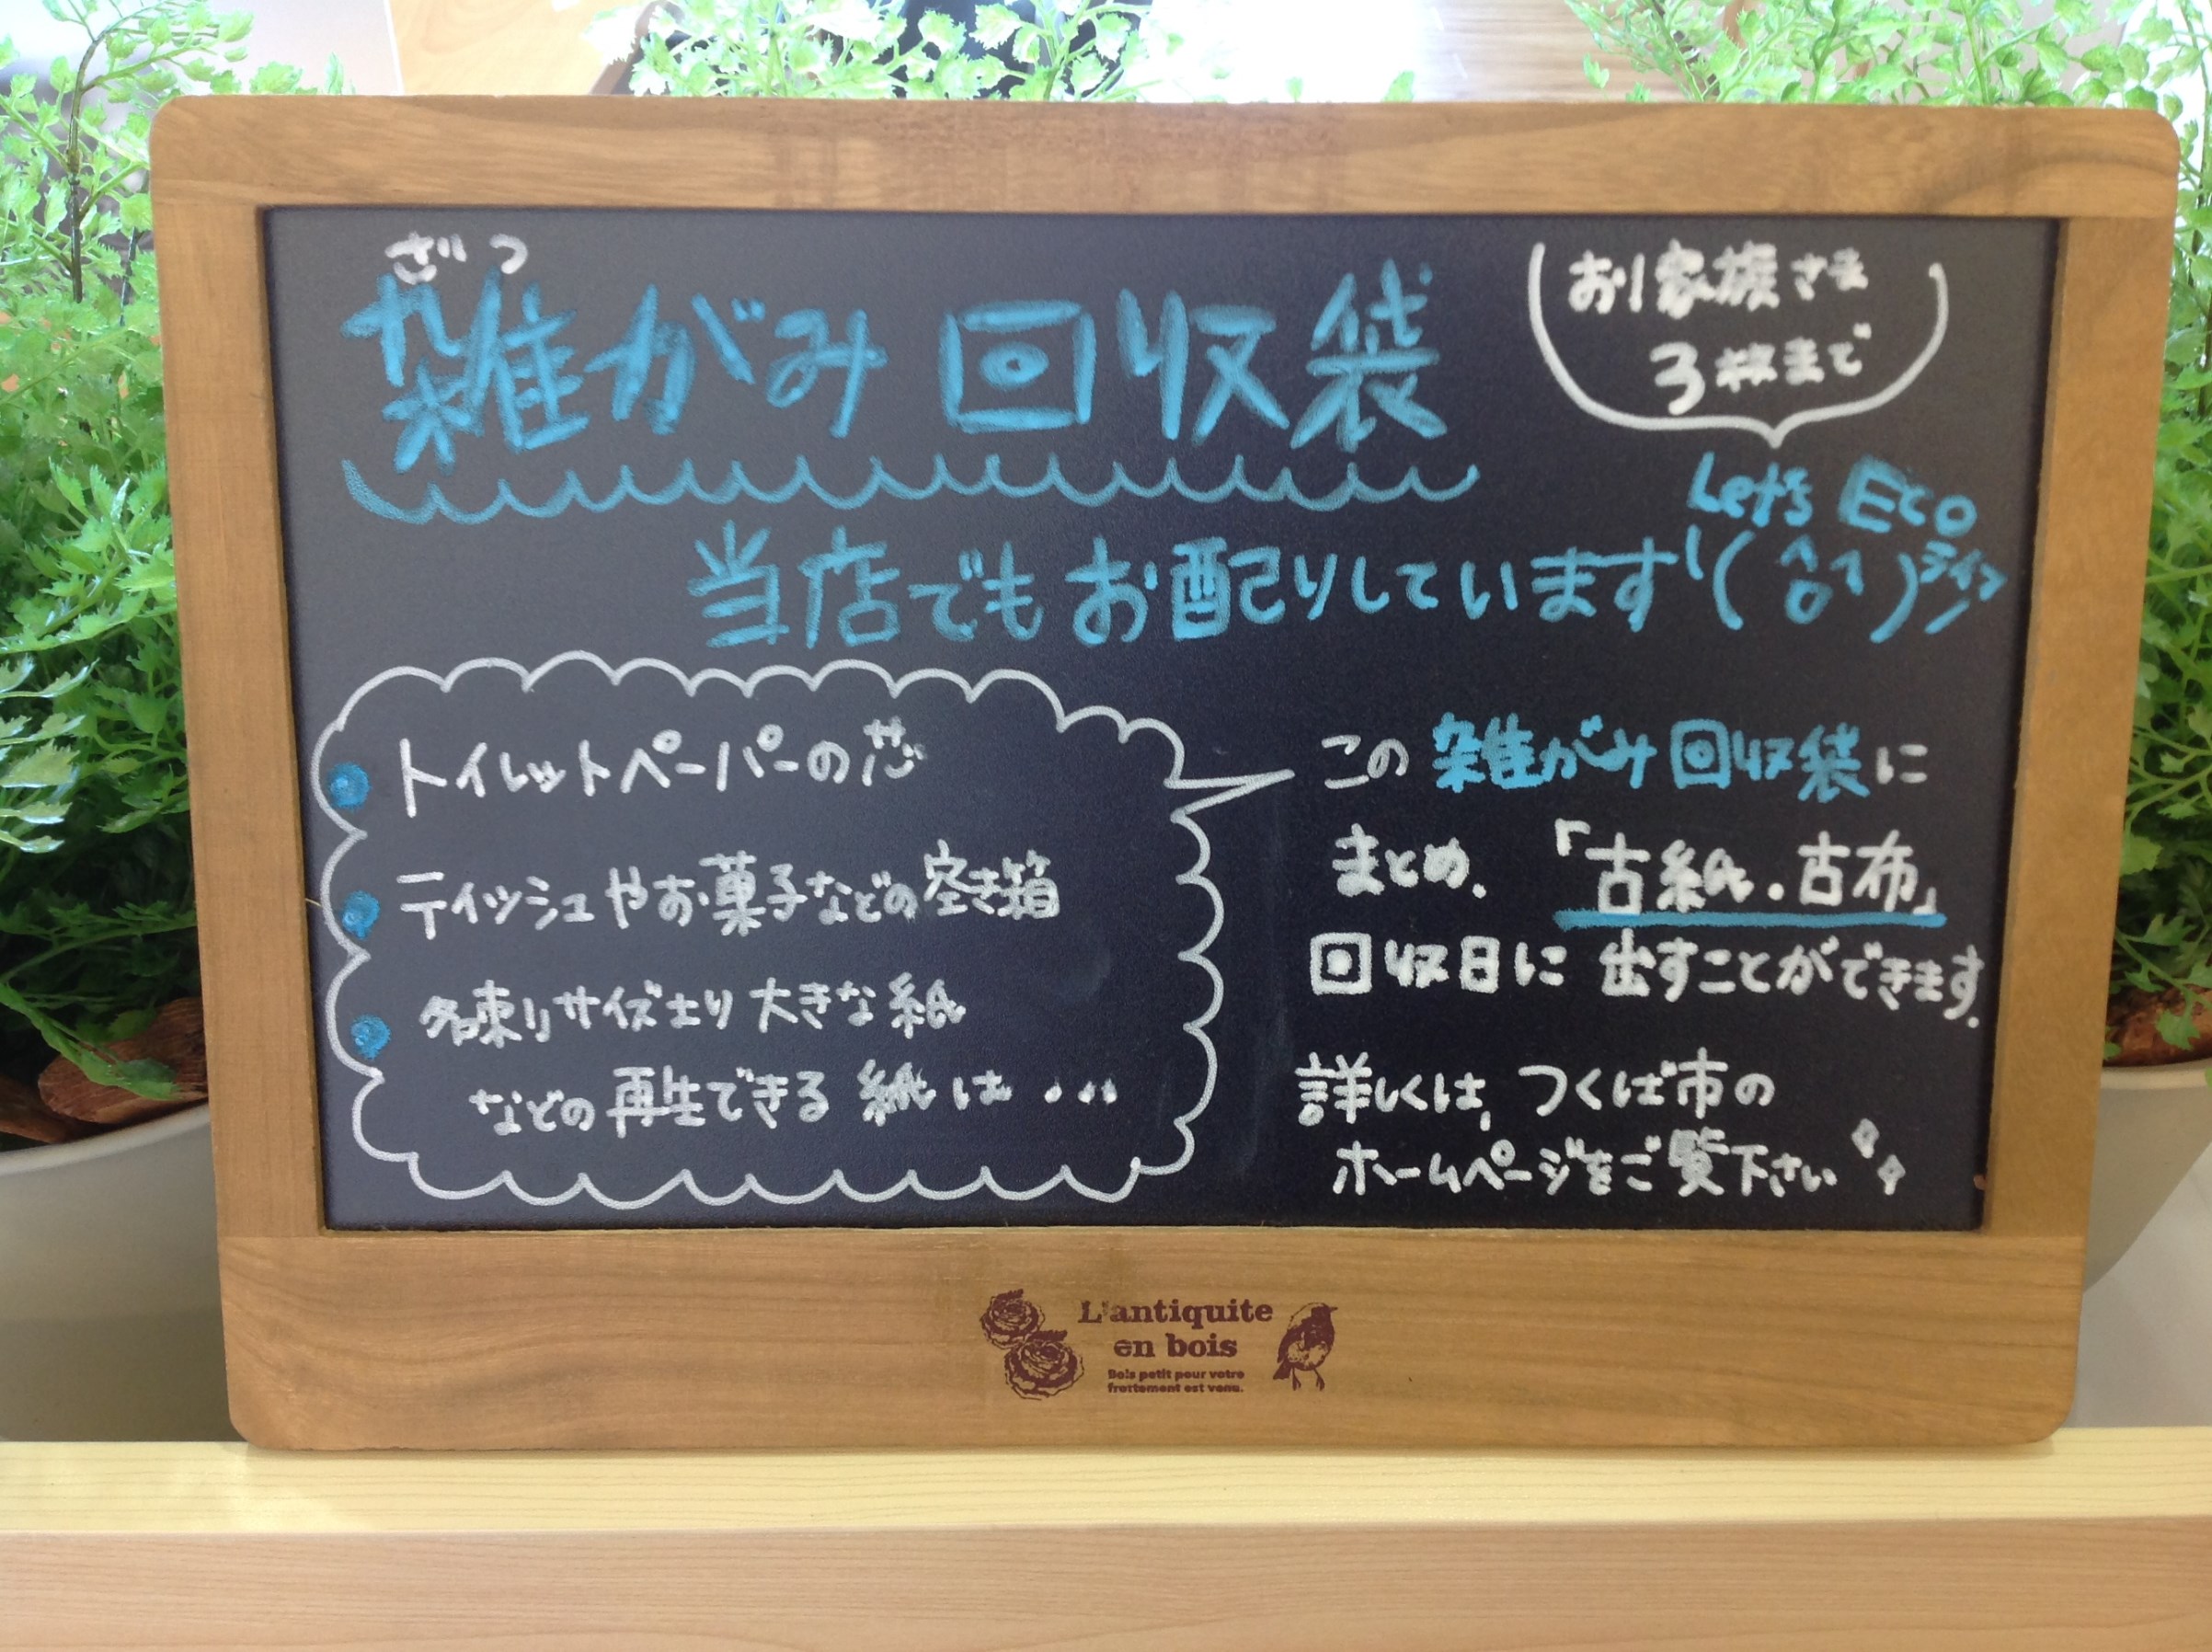 ざつ
雑がみ回収袋
お1家族さま
3枚まで
Let's Eco
ライフ
当店でもお配りしています\(^o^)/
・トイレットペーパーの芯
・ティッシュやお菓子などの空き箱
・名刺サイズより大きな紙
などの再生できる紙は・・・
この雑がみ回収袋に
まとめ、「古紙・古布」
回収日に出すことができます。
詳しくは、つくば市の
ホームページをご覧下さい
L'antiquite
en bois
Bois petit pour votre
frottement est venu.